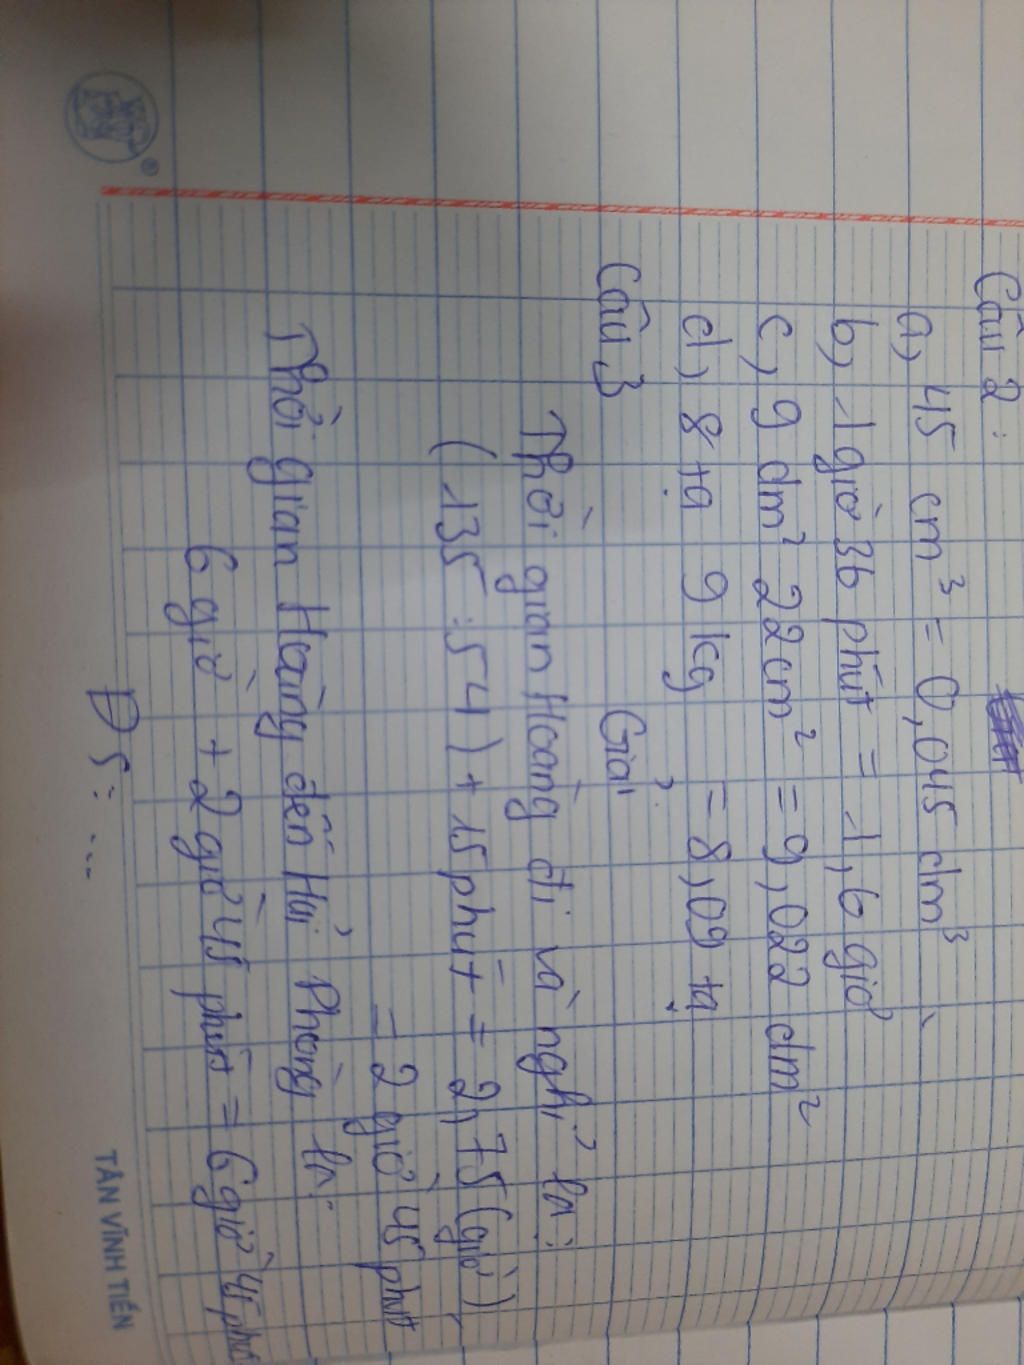 Câu 2:
a, 45 cm³ = 0,045 dm³
b, 1 giờ 36 phút = 1,6 giờ
c, 9 dm² 22cm² = 9,022 dm²
d, 8 tạ 9 kg = 8,09 tạ
Câu 3
Giải
Thời gian Hoàng đi và nghỉ là:
(135 : 54) + 15 phút = 2,75 (giờ)
= 2 giờ 45 phút
Thời gian Hoàng đến Hải Phòng là:
6 giờ + 2 giờ 45 phút = 6 giờ 45 phút
ĐS: ...
TÂN VĨNH TIẾN